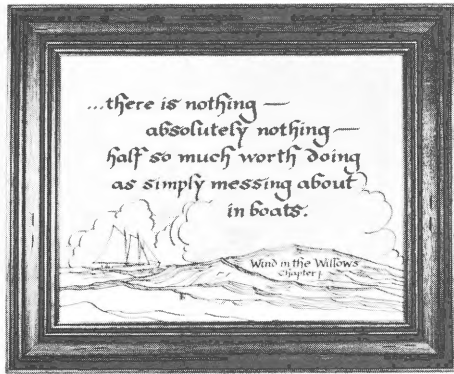 ...there is nothing —
absolutely nothing —
half so much worth doing
as simply messing about
in boats.
Wind in the Willows
Chapter 1